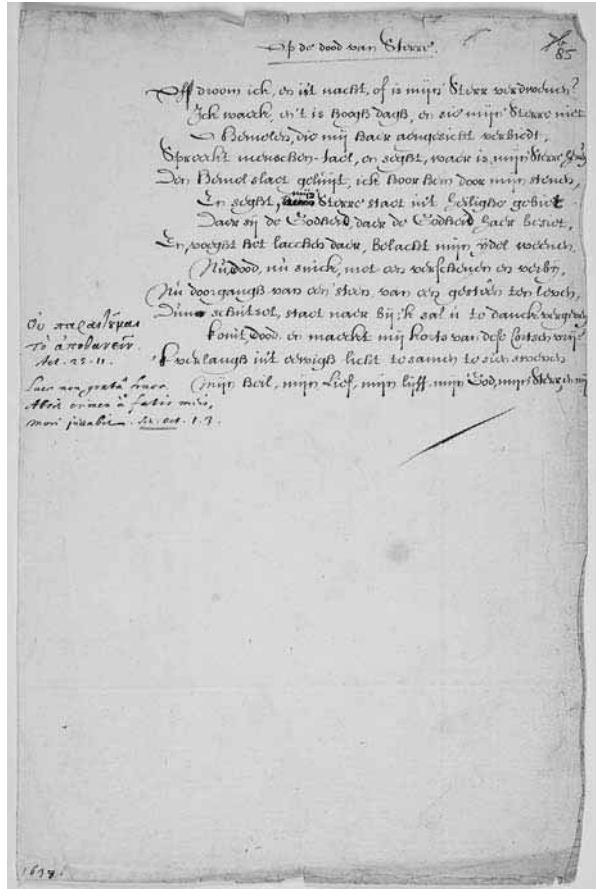 Op de dood van Sterre.
85
Off droom ick, en is't nacht, of is mijn' Sterr verdwenen?
Ick waeck, en 't is hoogh dagh, en sie mijn' Sterre niet
O Hemelen, die mij haer aengesicht verbiedt,
Spreeckt menschen-tael, en seght, waer is mijn' Sterre henen
Den Hemel slaet geluijt, ick hoor hem door mijn stenen,
En seght, mijn' Sterre staet in't heilighe gebiet
Daer sij de Godheid, daer de Godheid haer besiet,
En, voeght het lacchen daer, belacht mijn ijdel weenen.
Nu, dood, nu snick, met een verschenen en verbij,
Nu doorgangh van een' steen, van een gesteen ten leven,
Dunn schutsel, staet naer bij; 'k sal u te danck vergeven
Komt, dood, en maeckt mij korts van dese Cortsen vrij
'K verlangh in't eewigh licht te samen te sien sweven
Mijn Heil, mijn Lief, mijn lijff, mijn God, mijn Sterr, en mij
Οὐ παραιτοῦμαι
τὸ ἀποθανεῖν.
Act. 25.11.
Luce non grata fruor.
Absit crimen à fatis meis,
mori juvabit. Sen. Oct. 1.3.